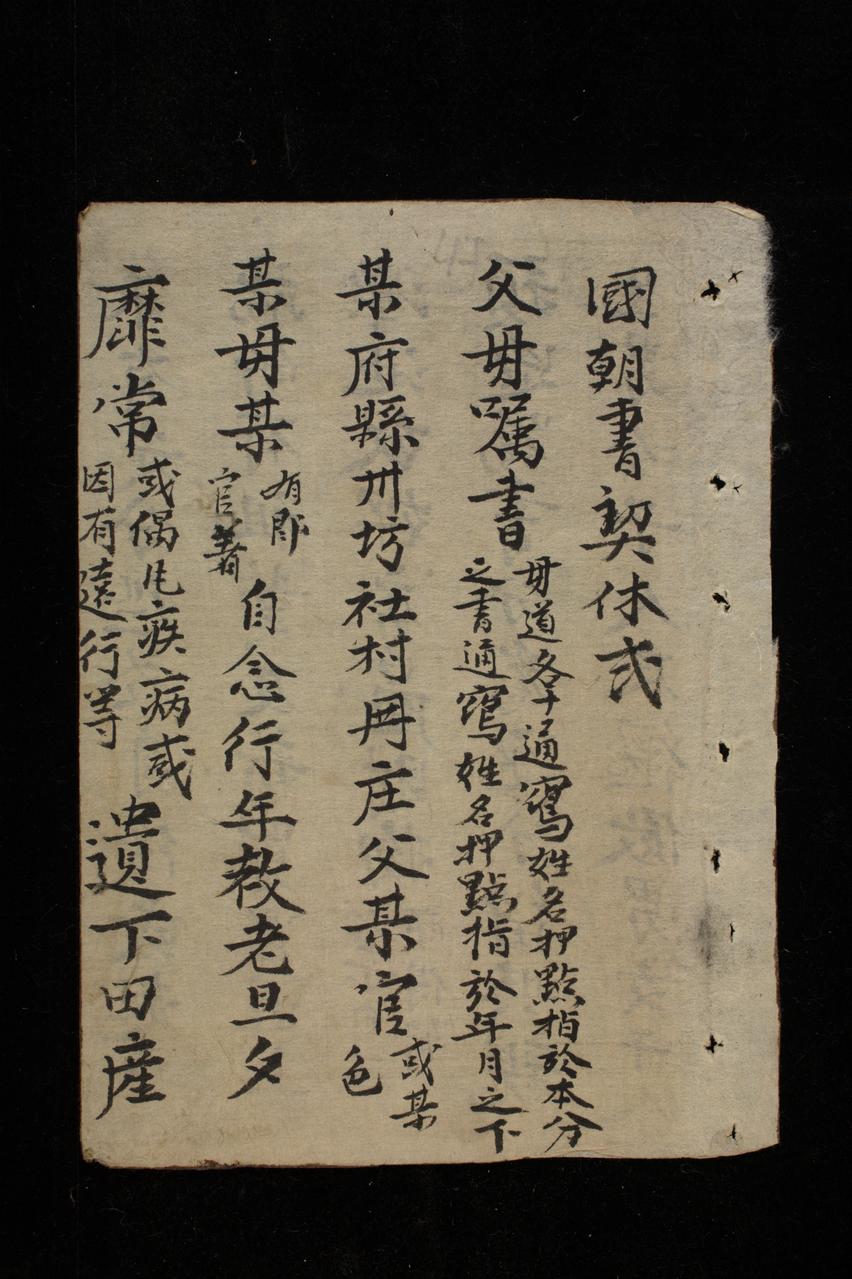 國朝書契体式
父毋嘱書毋道各十通寫姓名押點指於本分之書通寫姓名押點指於年月之下
某府縣卅坊社村冊庄父某官或某色
某毋某有即官著自念行年教老旦夕
靡常或偶凡疾病或因有遠行等遺下田産